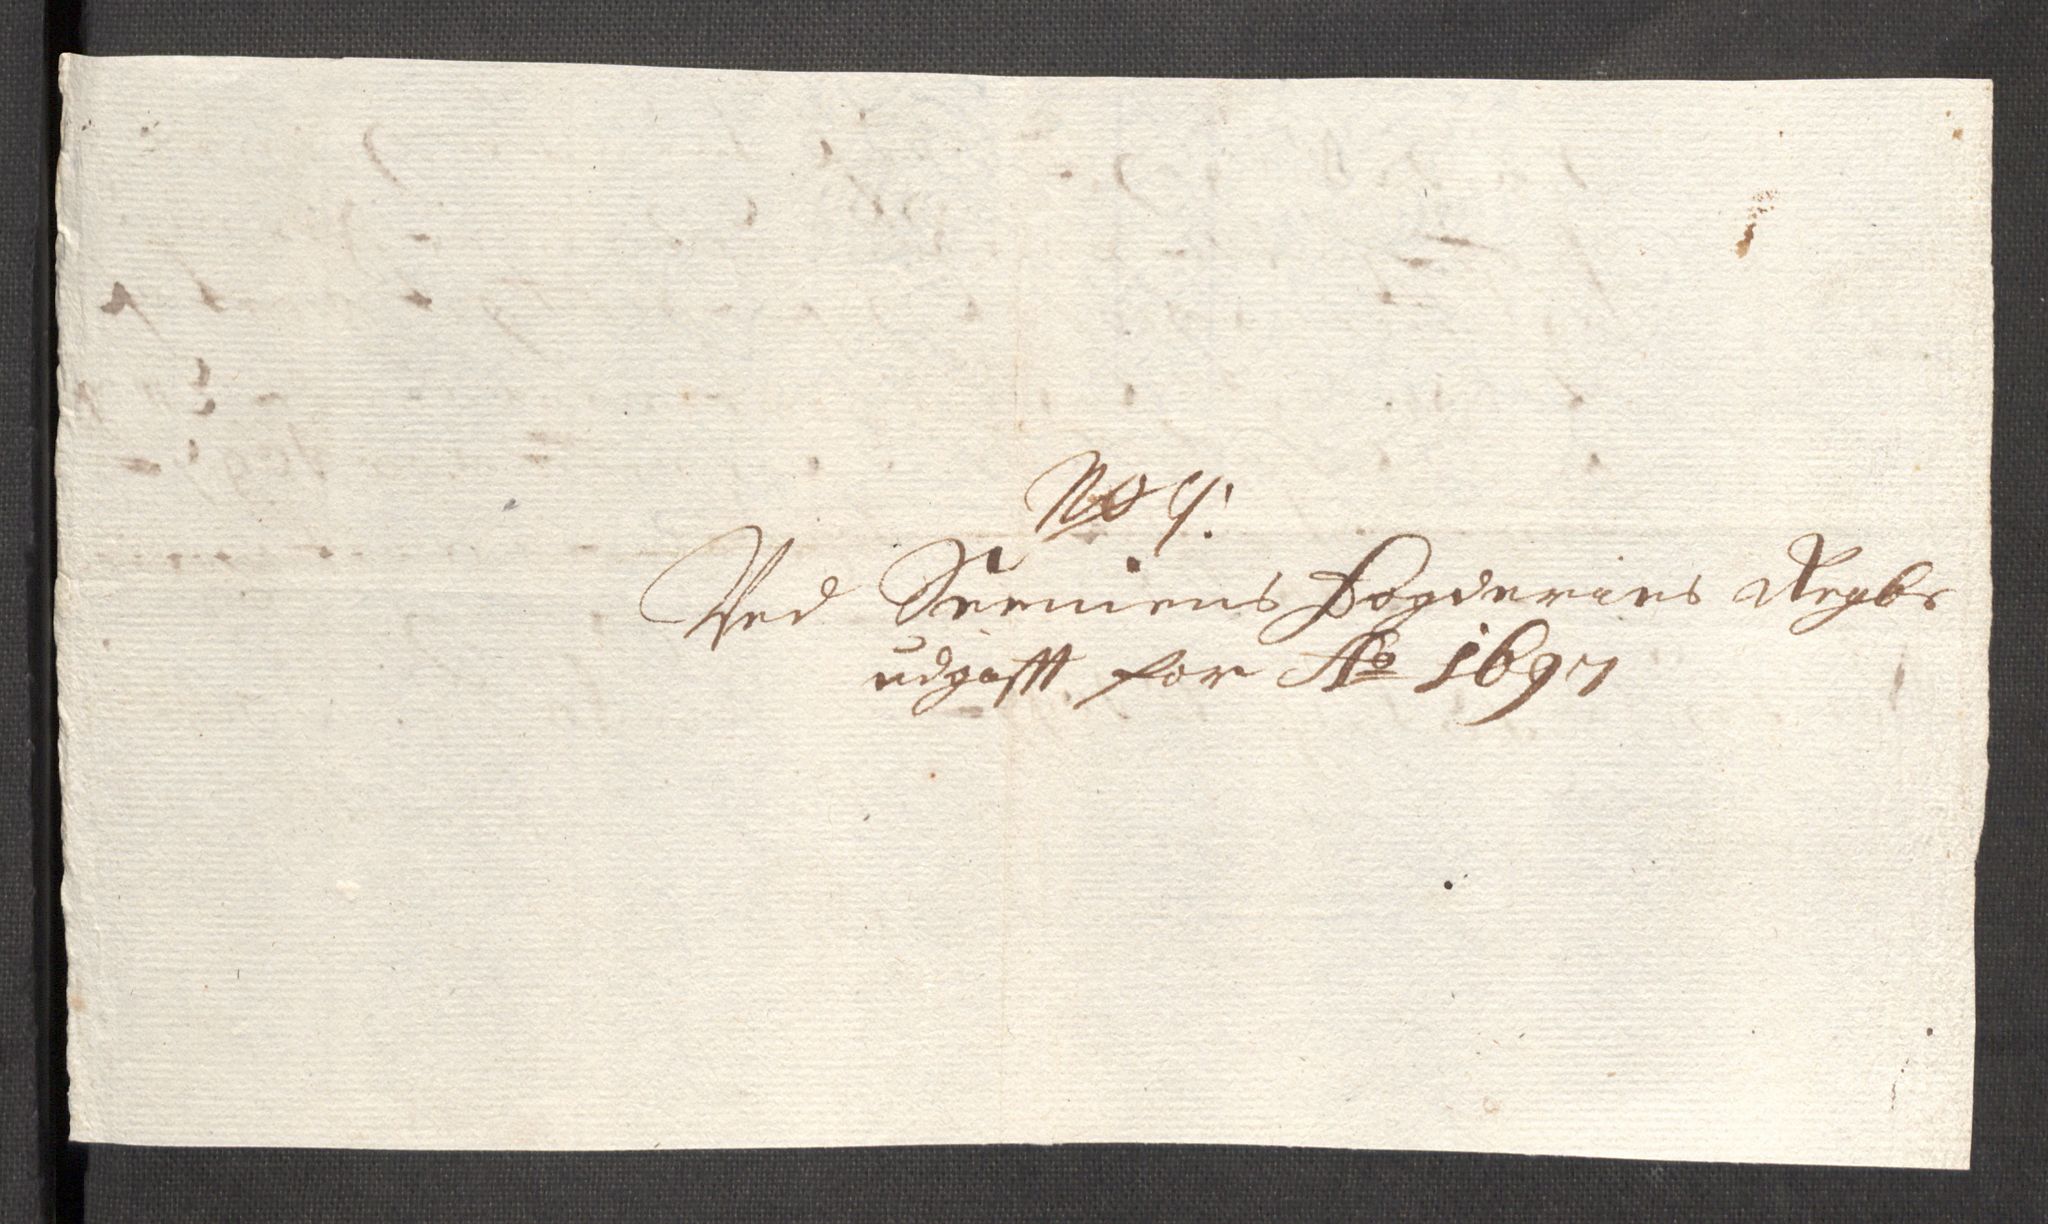 No 9:
Ved Senniens Fogderies Regbs
udgifft for Ao 1697